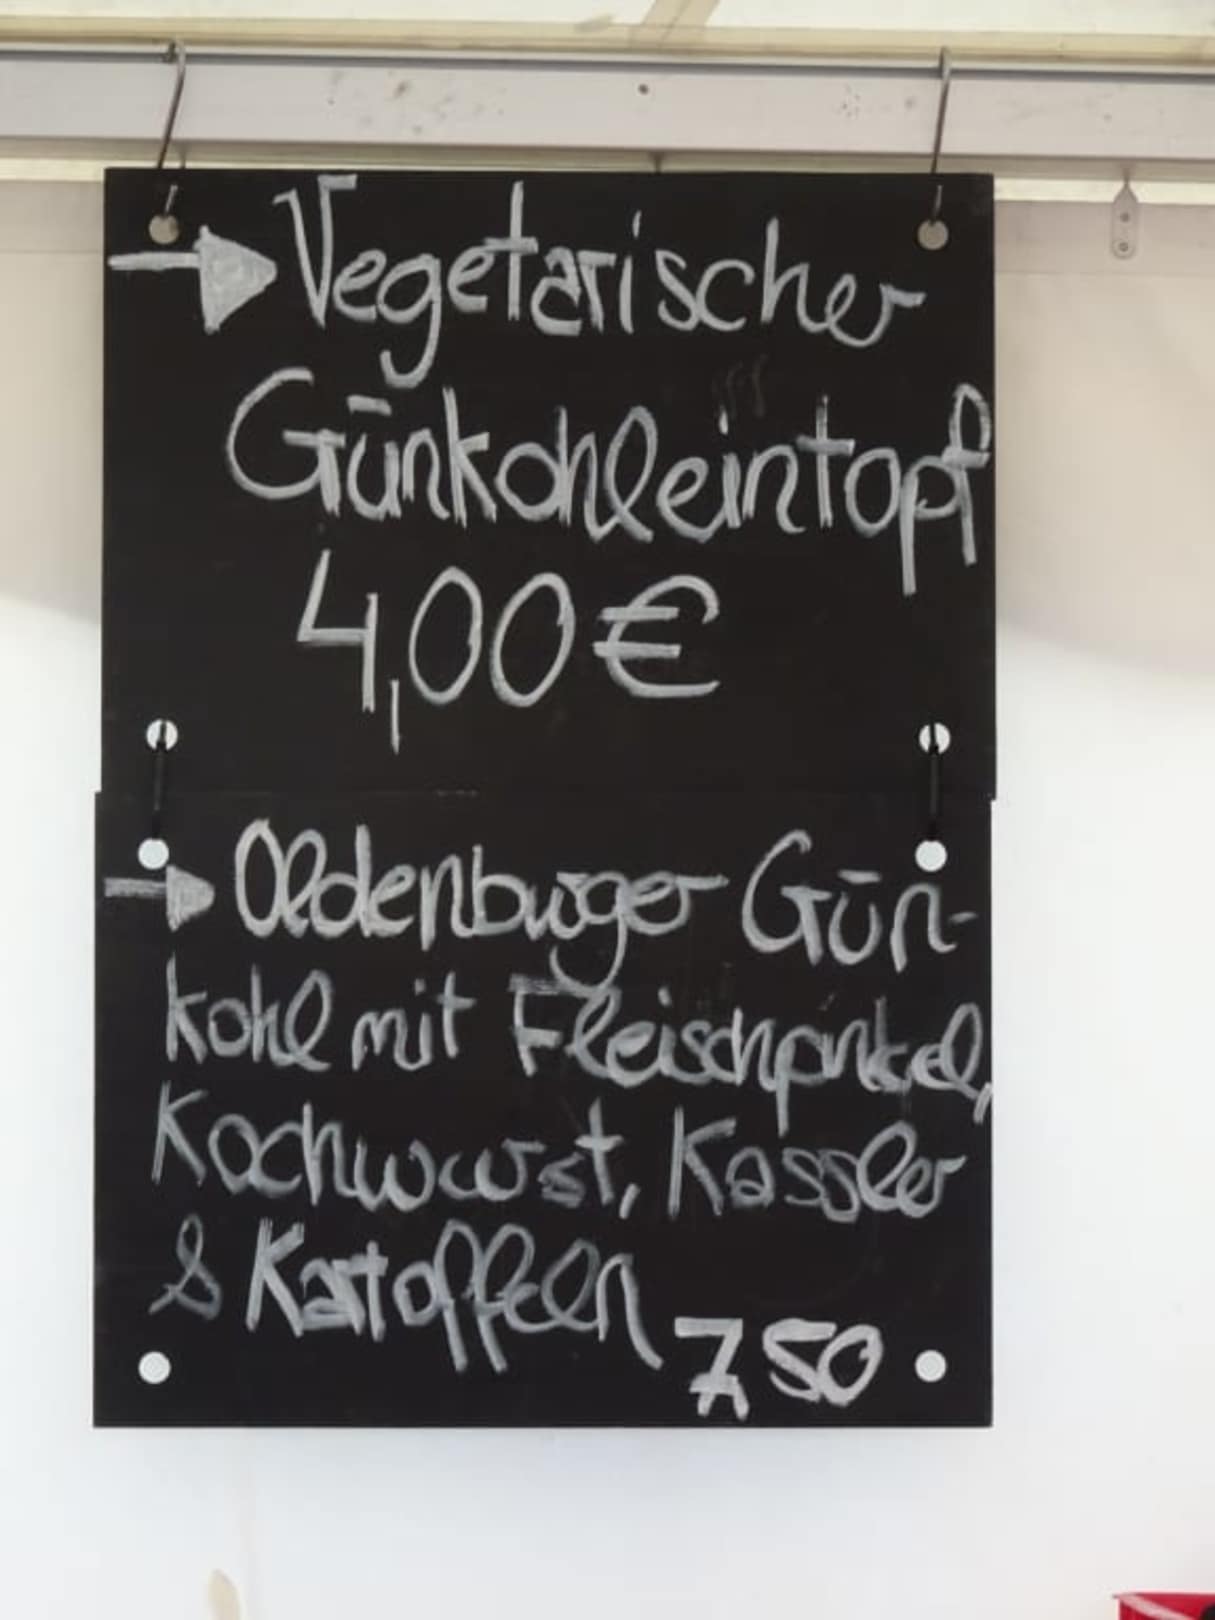 Vegetarischer
Günkohleintopf
4,00€
Oldenburger Gün-
kohl mit Fleischpinkel,
Kochwurst, Kassler
& Kartoffeln
7,50